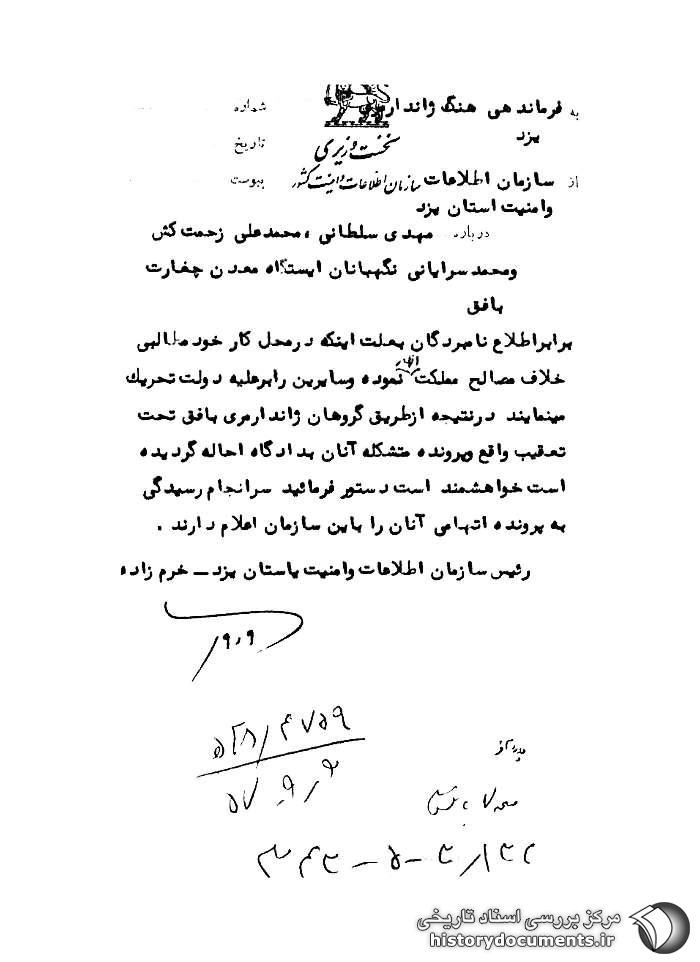 به فرماندهی هنگ ژاندارمری
یزد
شماره
نخست وزیری
تاریخ
از سازمان اطلاعات
سازمان اطلاعات و امنیت کشور
پیوست
وامنیت استان یزد
درباره مهدی سلطانی ، محمدعلی زحمت کش
ومحمد سرایانی نگهبانان ایستگاه معدن چغارت
بافق
برابراطلاع نامبردگان بعلت اینکه درمحل کار خود مطالبی
خلاف مصالح مملکت اظهار نموده وسایرین رابرعلیه دولت تحریك
مینمایند درنتیجه ازطریق گروهان ژاندارمری بافق تحت
تعقیب واقع وپرونده متشکله آنان بدادگاه احاله گردیده
است خواهشمند است دستور فرمائید سرانجام رسیدگی
به پرونده اتهامی آنان را باین سازمان اعلام دارند .
رئیس سازمان اطلاعات وامنیت یاستان یزد ــ خرم زاده
۹ر۹
۴۷۵۹
۵۷ر۹ر۹
مرکز بررسی اسناد تاریخی
historydocuments.ir